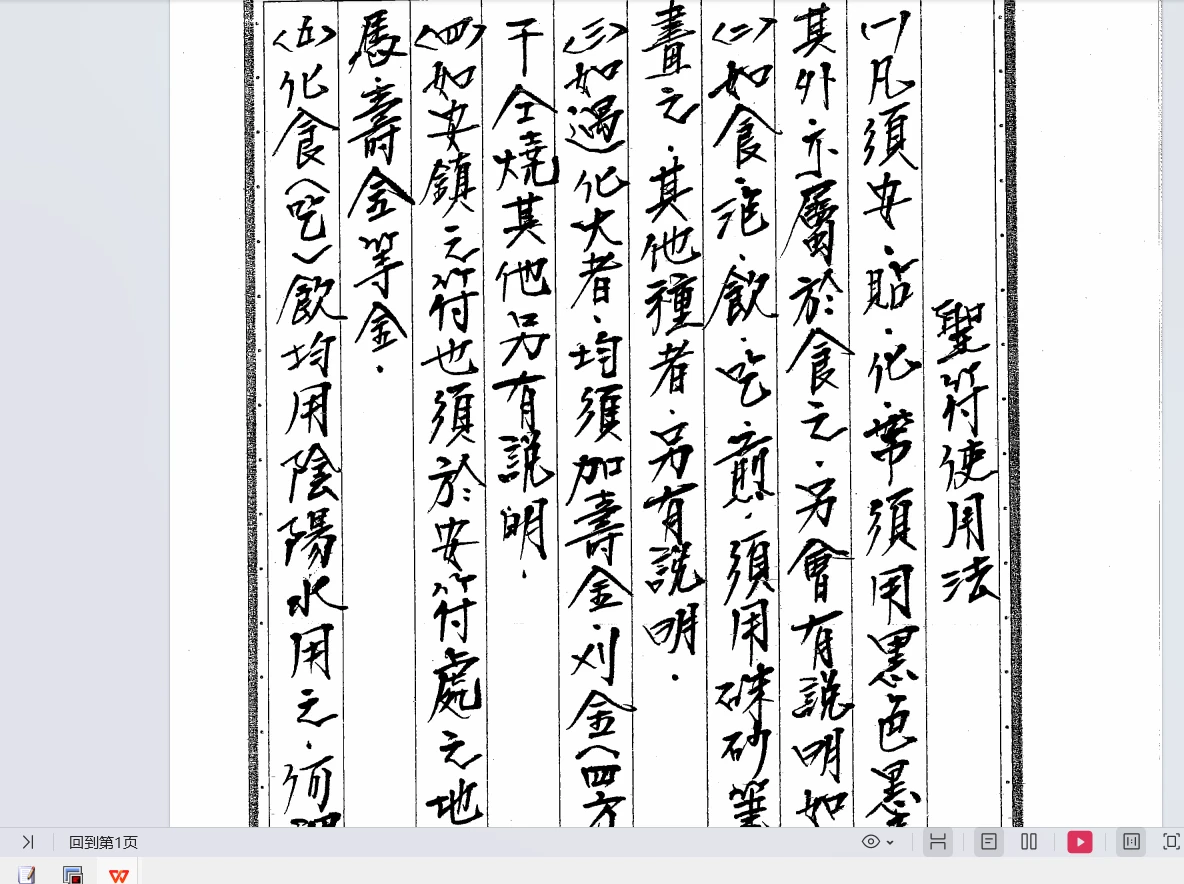 聖符使用法
㈠凡須安．貼．化．帶須用黑色墨
其外亦屬於食之．另會有說明如
㈡如食．泡．飲．吃．煎．須用硃砂筆
畫之．其他種者．另有說明．
㈢如遇化火者．均須加壽金．刈金（四方
干全燒其他另有說明．
㈣如安鎮之符也須於安符處之地
馬．壽金等金．
㈤化食（吃）飲均用陰陽水用之．何謂
回到第1页